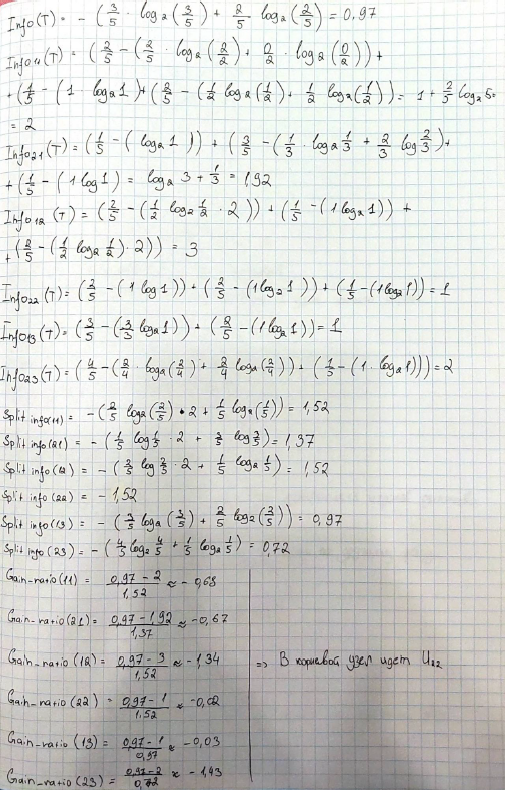 Info(T) = - (3/5 · log₂(3/5) + 2/5 log₂(2/5)) = 0,97
Info₁₁(T) = (2/5 - (2/5 · log₂(2/2) + 0/2 · log₂(0/2)) +
+(1/5 - (1 log₂1)+(2/5 - (1/2 log₂(1/2) + 1/2 log₂(1/2)) = 1 + 2/5 log₂5=
= 2
Info₂₁(T) = (1/5 - (log₂1)) + (3/5 - (1/3 · log₂ 1/3 + 2/3 log 2/3) +
+ (1/5 - (1 log1) = log₂ 3 + 1/3 = 1,92
Info₁₂(T) = (2/5 - (1/2 log₂ 1/2 · 2)) + (1/5 - (1 log₂1)) +
+ (2/5 - (1/2 log₂ 1/2) · 2)) = 3
Info₂₂(T) = (2/5 - (1 log1)) + (2/5 - (1 log₂1)) + (1/5 - (1 log₂1)) = 1
Info₁₃(T) = (3/5 - (3/3 log₂1)) + (2/5 - (1 log₂1)) = 1
Info₂₃(T) = (4/5 - (2/4 · log₂(2/4) + 2/4 log₂(2/4)) + (1/5 - (1 · log₂1))) = 2
Split info(11) = -(2/5 log₂(2/5) · 2 + 1/5 log₂(1/5)) = 1,52
Split info(21) = - (1/5 log 1/5 · 2 + 3/5 log 3/5) = 1,37
Split info(12) = - (2/5 log 2/5 · 2 + 1/5 log₂ 1/5) = 1,52
Split info(22) = - 1,52
Split info(13) = - (3/5 log₂(3/5) + 2/5 log₂(2/5)) = 0,97
Split info(23) = -(4/5 log₂ 4/5 + 1/5 log₂ 1/5) = 0,72
Gain-ratio(11) = (0,97 - 2)/1,52 ≈ - 0,68
Gain-ratio(21) = (0,97 - 1,92)/1,37 ≈ -0,67
Gain-ratio(12) = (0,97 - 3)/1,52 ≈ -1,34
=> В корневой узел идет U₂₂
Gain-ratio(22) = (0,97 - 1)/1,52 ≈ -0,02
Gain-ratio(13) = (0,97 - 1)/0,97 ≈ -0,03
Gain-ratio(23) = (0,97 - 2)/0,72 ≈ -1,43